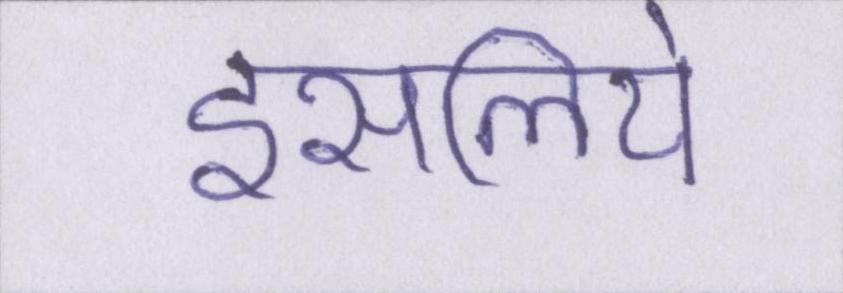 इसलिये